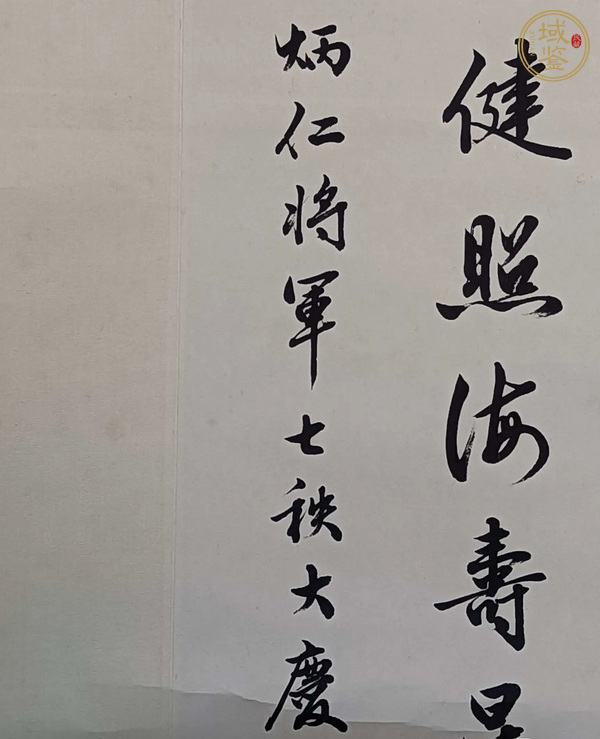 健照海壽星
炳仁將軍七秩大慶
域鉴